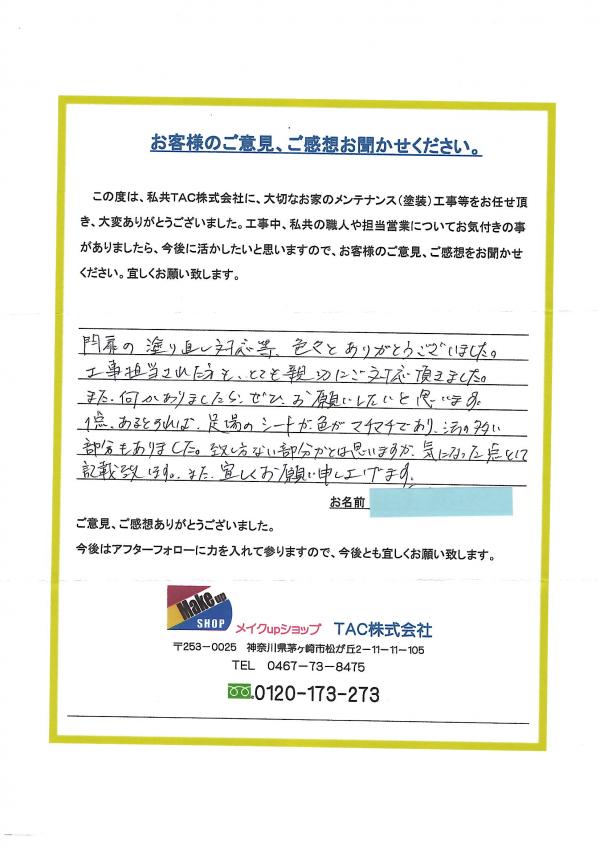 お客様のご意見、ご感想お聞かせください。
この度は、私共TAC株式会社に、大切なお家のメンテナンス（塗装）工事等をお任せ頂
き、大変ありがとうございました。工事中、私共の職人や担当営業についてお気付きの事
がありましたら、今後に活かしたいと思いますので、お客様のご意見、ご感想をお聞かせ
ください。宜しくお願い致します。
門扉の塗り直し対応等、色々とありがとうございました。
工事担当された方も、とても親切にご対応頂きました。
また何かありましたら、ぜひ、お願いしたいと思います。
1点、あるとすれば、足場のシートが色がマチマチであり、汚の多い
部分もありました。致し方ない部分かとは思いますが、気になった点として
記載致します。また、宜しくお願い申し上げます。
お名前
ご意見、ご感想ありがとうございました。
今後はアフターフォローに力を入れて参りますので、今後とも宜しくお願い致します。
Make up
SHOP
メイクupショップ TAC株式会社
〒253−0025 神奈川県茅ヶ崎市松が丘2−11−11−105
TEL 0467−73−8475
0120-173-273